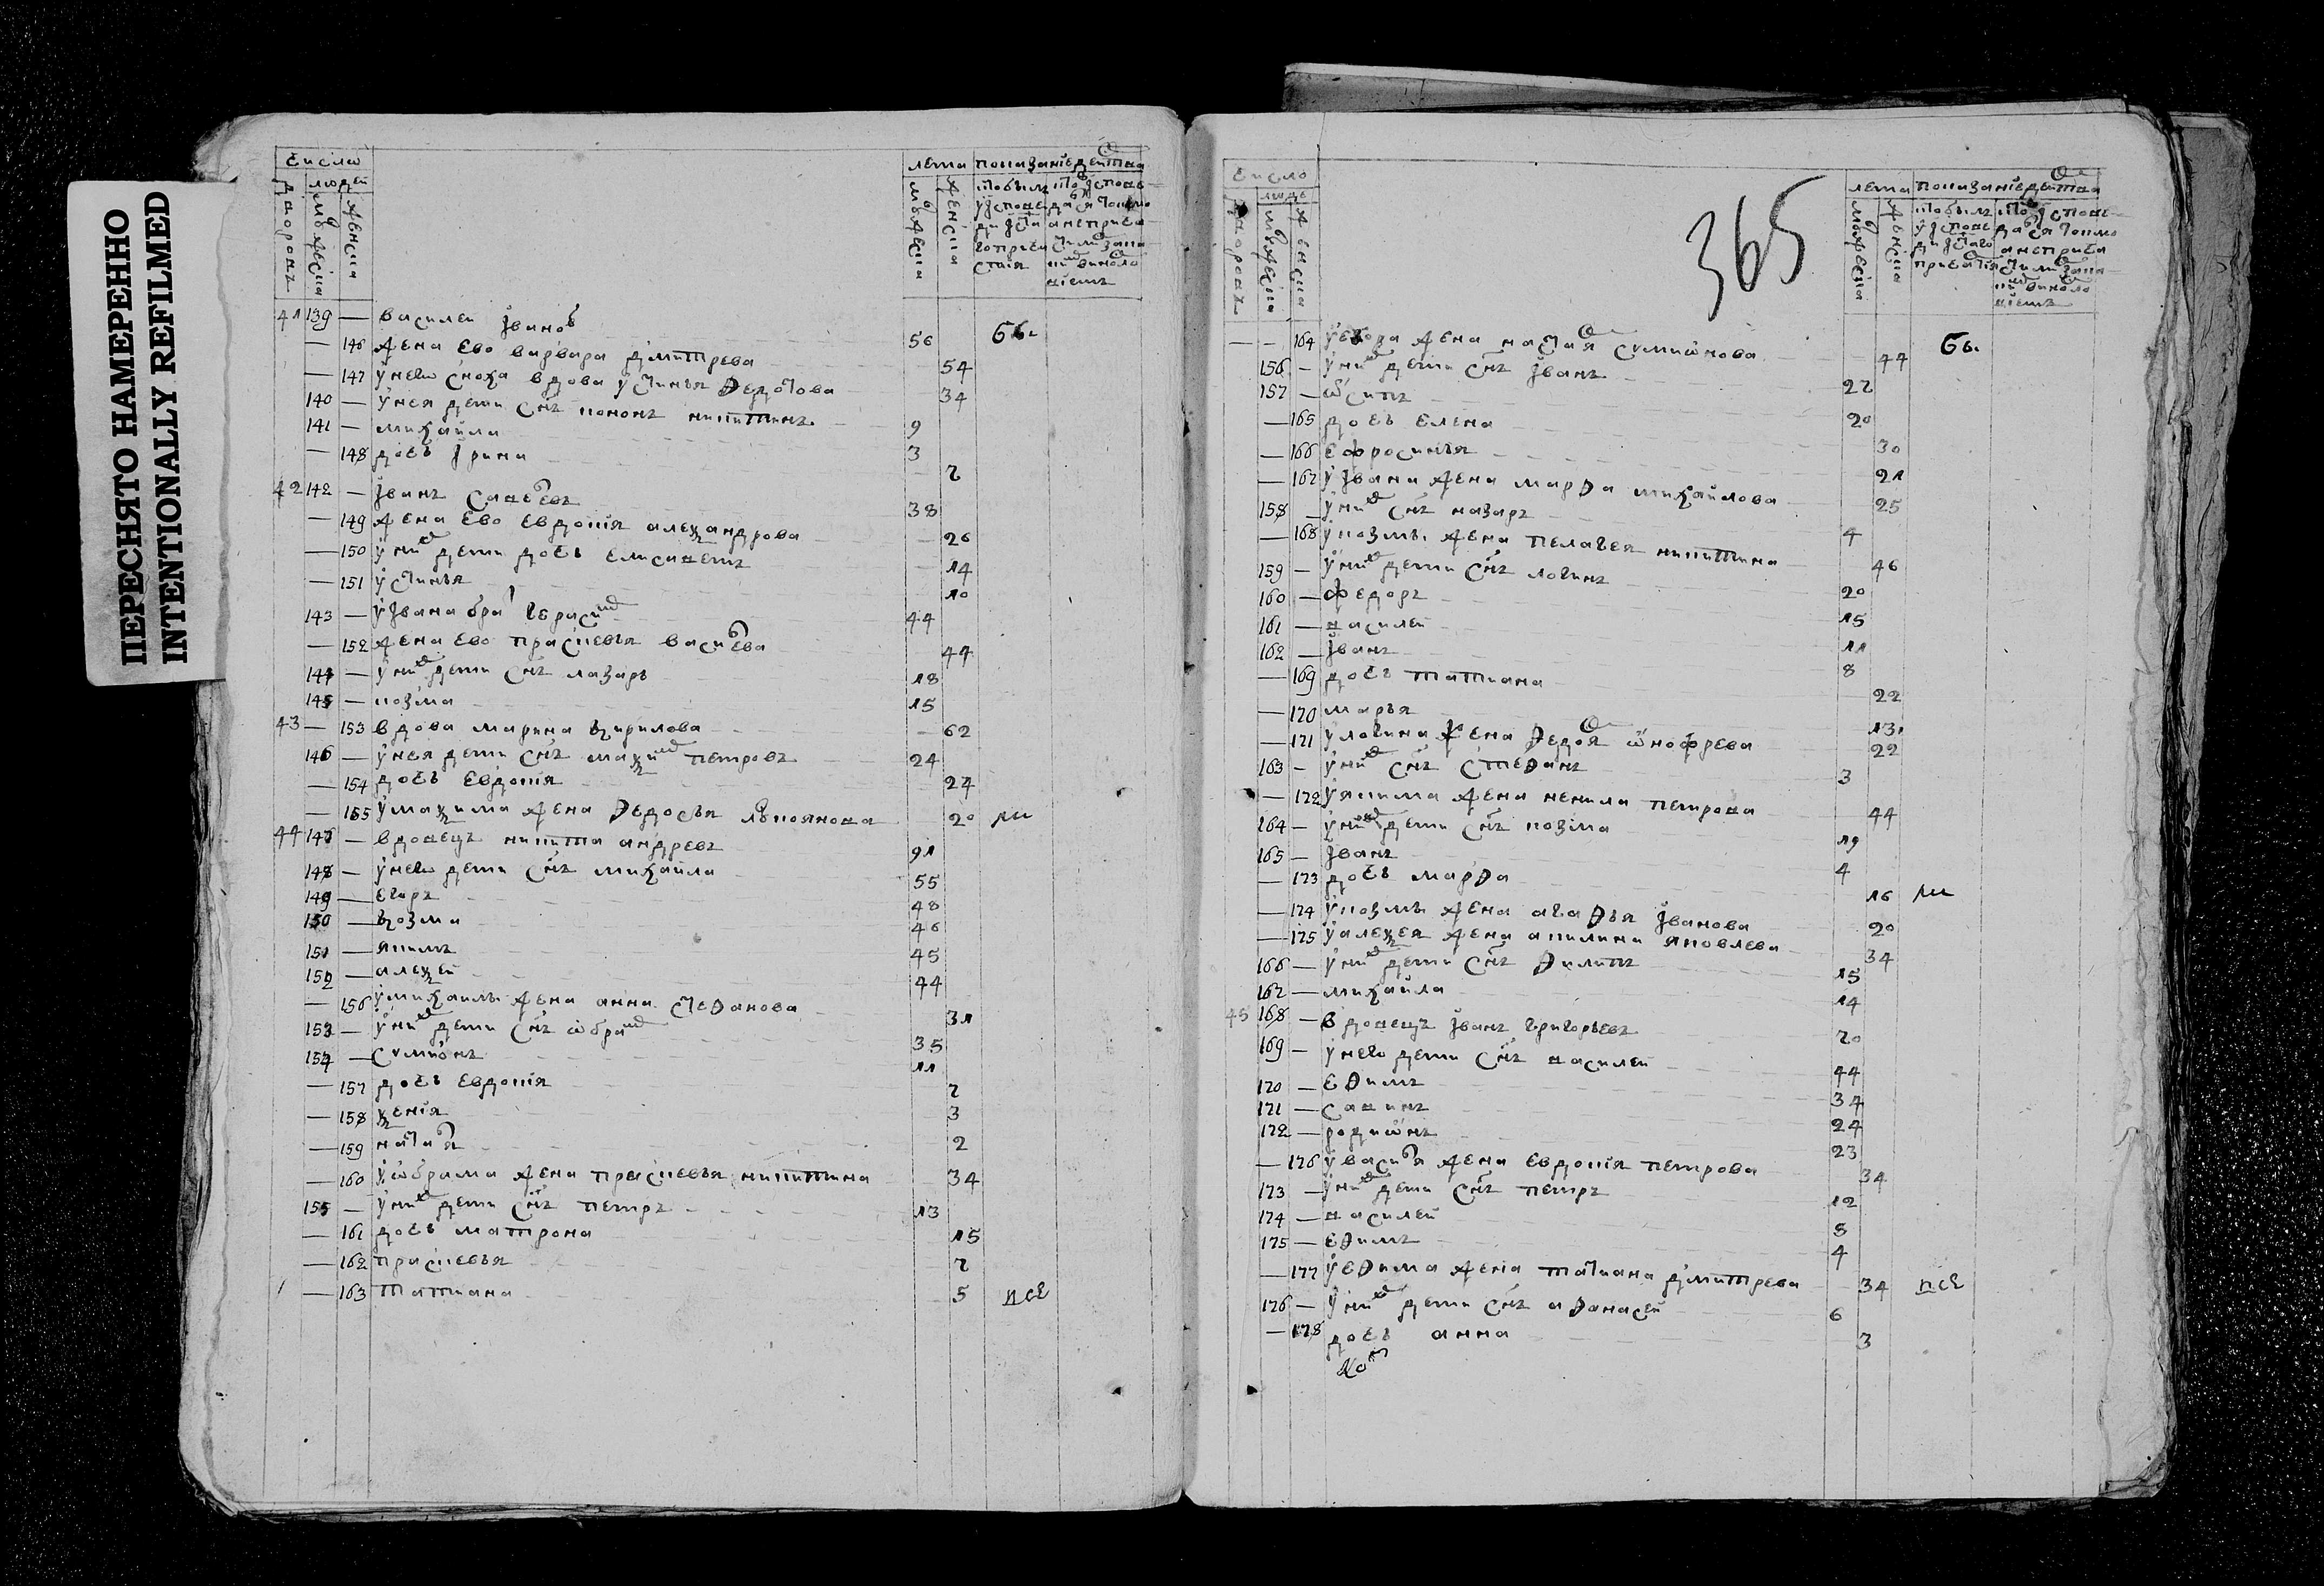 ПЕРЕСНЯТО НАМЕРЕННО
INTENTIONALLY REFILMED
число
людей
лета показание действа
41 139 — василеи Iвановъ 56 бы
— 146 жена ево варвара дмитрева 54
— 147 у него сноха вдова устинья Ѳедотова 34
140 — у нея дети снъ кононъ никитинъ 9
141 — михаила 3
— 148 дочь Iрина 7
42 142 — Iванъ савельевъ 38
— 149 жена ево евдокiя алеѯандрова 26
— 150 у них дети дочь елисаветъ 14
— 151 устинья 10
143 — у Iвана брат герасим 44
— 152 жена ево прасковья васильева 44
144 — у них дети снъ лазарь 18
145 — козма 15
43 — 153 вдова марина кирилова 62
146 — у нея дети снъ маѯим петровъ 24
— 154 дочь евдокiя 24
— 155 у маѯима жена Ѳедосья лукоянова 20
44 147 — вдовецъ никита андревъ 91
148 — у негѡ дети снъ михаила 55
149 — егоръ 48
150 — козма 46
151 — якимъ 45
152 — алеѯей 44
— 156 у михаилы жена анна стеѲанова 31
153 — у них дети снъ ѡбрам 35
154 — сумиѡнъ 11
— 157 дочь евдокiя 7
— 158 ѯенiя 3
— 159 наталья 2
— 160 у ѡбрама жена прасковья никитина 34
155 — у них дети снъ петръ 13
— 161 дочь матрона 15
— 162 прасковья 7
— 163 татиана 5 всѣ
365
число
людей
лета показание действа
— 164 у егора жена настасья сумиѡнова 44 бы
156 — у них дети снъ Iванъ 22
157 — ѡсипъ 20
— 165 дочь елена 30
— 166 ефросинья 21
— 167 у Iвана жена марѲа михайлова 25
158 — у них снъ назаръ 4
— 168 у козмы жена пелагея никитина 46
159 — у них дети снъ логинъ 20
160 — федоръ 15
161 — василеи 11
162 — Iванъ 8
— 169 дочь татиана 22
— 170 марья 13
— 171 у логина жена Ѳедосья ѡнофрева 22
163 — у них снъ стеѲанъ 3
— 172 у якима жена ненила петрова 44
164 — у них дети снъ козма 19
165 — Iванъ 4
— 173 дочь марѲа 16
— 174 у козмы жена агаѲья Iванова 20
— 175 у алеѯея жена акилина яковлева 34
166 — у них дети снъ Ѳилипъ 15
167 — михаила 14
45 168 — вдовецъ Iванъ григорьевъ 70
169 — у негѡ дети снъ василеи 44
170 — еѲимъ 34
171 — савинъ 24
172 — родиѡнъ 23
— 176 у василья жена евдокiя петрова 34
173 — у них дети снъ петръ 12
174 — василеи 8
175 — еѲимъ 4
— 177 у еѲима жена татиана дмитрева 34 всѣ
176 — у них дети снъ аѲанасей 6
— 178 дочь анна 3